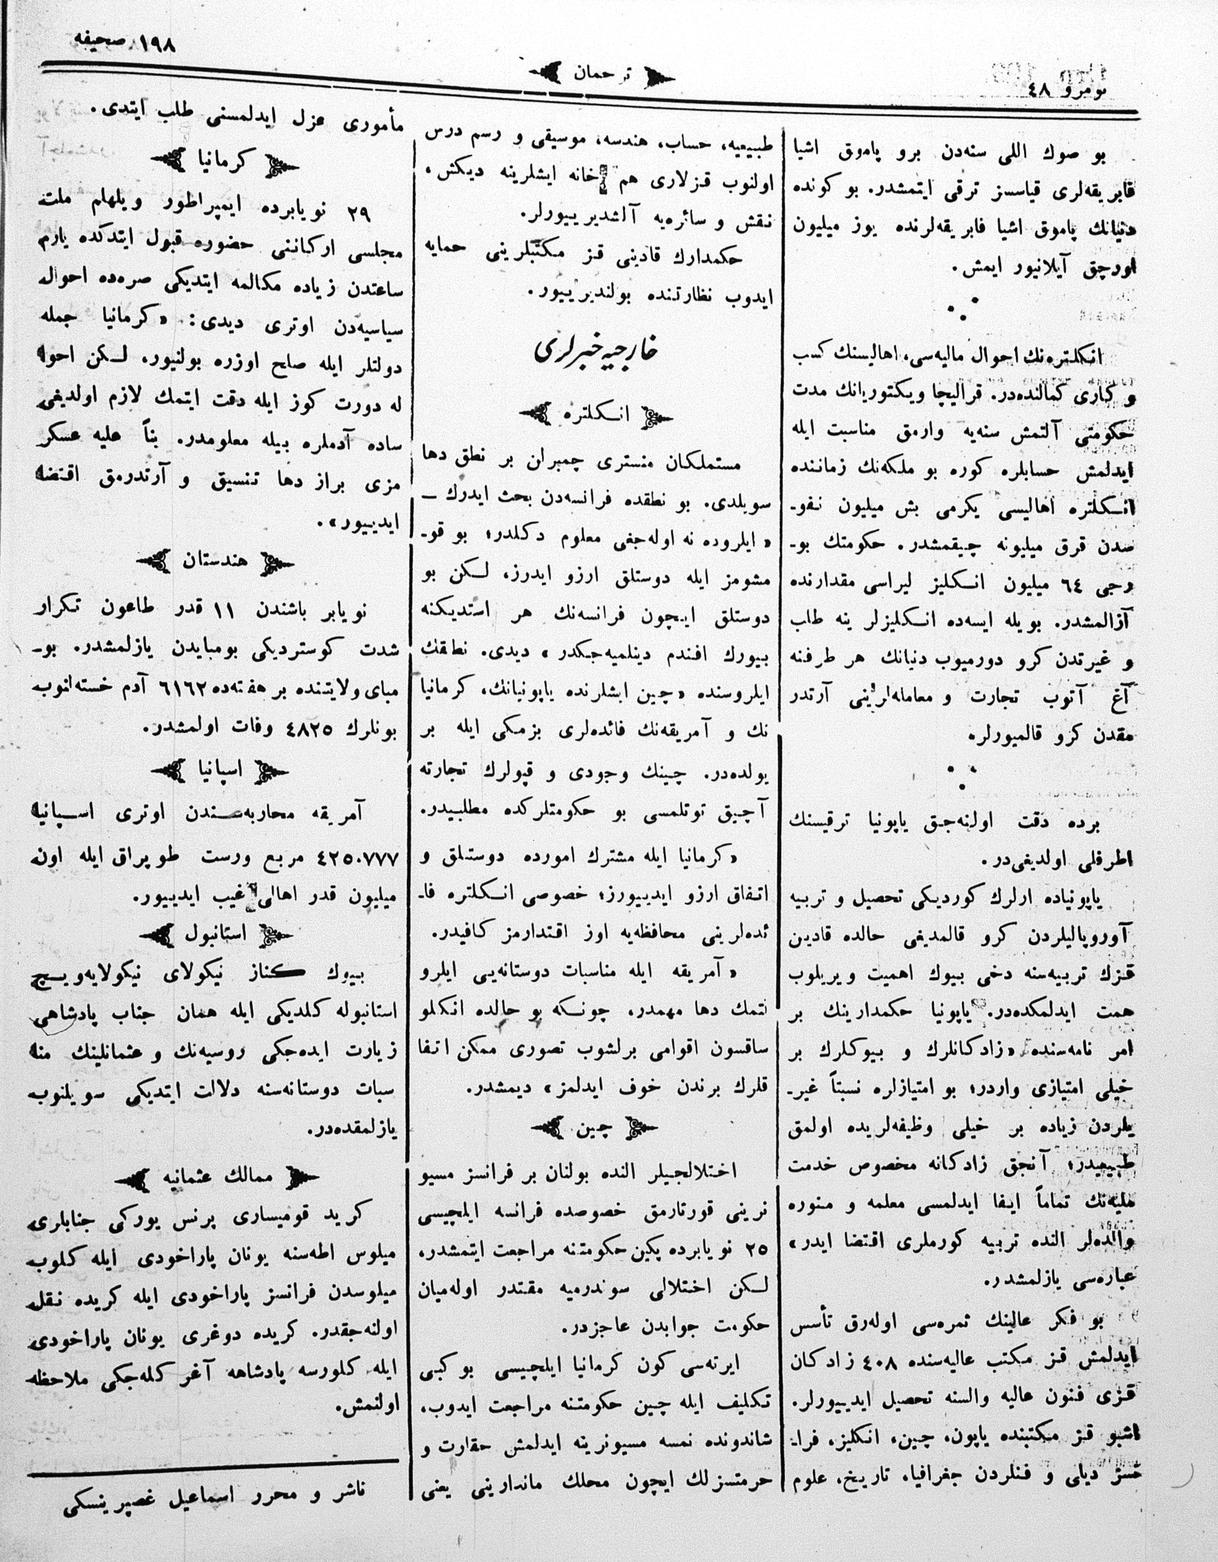 نومرو ٤٨
ترجمان
١٩٨ صحیفه
بو صوك اللی سنه‌دن برو پاموق اشیا
فابریقه‌لری قیاسسز ترقی ایتمشدر. بو كونده
دنیانك پاموق اشیا فابریقه‌لرنده یوز میلیون
اورچق آیلانیور ایمش.
انكلتره‌نك احوال مالیه‌سی، اهالیسنك كسب
و كاری كمالنده‌در. قرالیچا ویكتوریانك مدت
حكومتی آلتمش سنه‌یه وارمق مناسبت ایله
ایدلمش حسابلره كوره بو ملكه‌نك زماننده
انـكلتره اهالیسی یكرمی بش میلیون نفو-
سدن قرق میلیونه چیقمشدر. حكومتك بو-
رجی ٦٤ میلیون انـكلیز لیراسی مقدارنده
آزالمشدر. بویله ایسه‌ده انـكلیزلر ینه طلب
و غیرتدن كرو دورمیوب دنیانك هر طرفنه
آغ آتوب تجارت و معامله‌لرینی آرتدر
مقدن كرو قالمیورلر.
برده دقت اولنه‌جق یاپونیا ترقیسنك
اطرفلی اولدیغی‌در.
یاپونیاده ارلرك كوردیكی تحصیل و تربیه
آوروپالیلردن كرو قالمدیغی حالده قادین
قزك تربیه‌سنه دخی بیوك اهمیت ویریلوب
همت ایدلمكده‌در. یاپونیا حكمدارینك بر
امر نامه‌سنده «زادكانلرك و بیوكلرك بر
خیلی امتیازی واردر؛ بو امتیازلره نسبتاً غیر-
یلردن زیاده بر خیلی وظیفه‌لریده اولمق
طبیعیدر؛ آنجق زادكانه مخصوص خدمت
ملیه‌نك تماماً ایفا ایدلمسی معلمه و منوره
والده‌لر النده تربیه كورملری اقتضا ایدر»
عباره‌سی یازلمشدر.
بو فكر عالینك ثمره‌سی اوله‌رق تأسس
ایدلمش قز مكتب عالیه‌سنده ٤٠٨ زادكان
قزی فنون عالیه والسنه تحصیل ایدییورلر.
اشبو قز مكتبنده یاپون، چین، انكلیز، فرا-
نسز دیلی و فنلردن جغرافیا، تاریخ، علوم
طبیعیه، حساب، هندسه، موسیقی و رسم درس
اولنوب قزلاری هم خانه ایشلرینه دیكش،
نقش و سائره‌یه آلشدیرییورلر.
حكمدارك قادینی قز مكتبلرینی حمایه
ایدوب نظارتنده بولندیرییور.
خارجیه خبرلری
انـكلتره
مستملكان منستری چمبران بر نطق دها
سویلدی. بو نطقده فرانسه‌دن بحث ایدرك —
« ایلروده نه اوله‌جغی معلوم دكلدر؛ بو قو-
مشومز ایله دوستلق ارزو ایدرز، لـكن بو
دوستلق ایچون فرانسه‌نك هر استدیكنه
بیورك افندم دینلمیه‌جكدر » دیدی. نطقك
ایلروسنده « چین ایشلرنده یاپونیانك، كرمانیا
نك و آمریقه‌نك فائده‌لری بزمكی ایله بر
یولده‌در. چینك وجودی و قپولرك تجارته
آچیق توتلمسی بو حكومتلركده مطلبیدر.
« كرمانیا ایله مشترك امورده دوستلق و
اتـفاق ارزو ایدییورز؛ خصوصی انـكلتره فا-
ئده‌لرینی محافظه‌یه اوز اقتدارمز كافیدر.
« آمریقه ایله مناسبات دوستانه‌یی ایلرو
ایتمك دها مهمدر. چونـكه بو حالده انكلو
ساقسون اقوامی برلشوب تصوری ممكن اتفا
قلرك برندن خوف ایدلمز » دیمشدر.
چین
اختلالجیلر النده بولنان بر فرانسز مسیو
نرینی قورتارمق خصوصده فرانسه ایلچیسی
٢٥ نویابرده پكین حكومتنه مراجعت ایتمشدر.
لـكن اختلالی سوندرمیه مقتدر اوله‌میان
حكومت جوابدن عاجزدر.
ایرته‌سی كون كرمانیا ایلچیسی بو كبی
تـكلیف ایله چین حكومتنه مراجعت ایدوب،
شاندونده نمسه مسیونرینه ایدلمش حقارت و
حرمتسزلك ایچون محلك ماندارینی یعنی
مأموری عزل ایدلمسنی طلب ایتدی.
كرمانیا
٢٩ نویابرده ایمپراطور ویلهلم ملت
مجلسی اركاننی حضوره قبول ایتدكده یارم
ساعتدن زیاده مكالمه ایتدیكی صره‌ده احوال
سیاسیه‌دن اوتری دیدی: «كرمانیا جمله
دولتلر ایله صلح اوزره بولنیور. لـكن احوا
له دورت كوز ایله دقت ایتمك لازم اولدیغی
ساده آدملره بیله معلومدر. بنأ علیه عسكر
مزی براز دها تنسیق و آرتدرمق اقتضا
ایدییور».
هندستان
نویابر باشندن ١١ قدر طاعون تكرار
شدت كوستردیكی بومبایدن یازلمشدر. بو-
مبای ولایتنده بر هفته‌ده ٦١٦٢ آدم خسته‌لنوب
بونلرك ٤٨٢٥ وفات اولمشدر.
اسپانیا
آمریقه محاربه‌سندن اوتری اسـپانیا
٤٢٥٠٧٧٧ مربع ورست طوپراق ایله اون
میلیون قدر اهالی غیب ایدییور.
استانبول
بیوك كناز نیكولای نیكولایه‌ویـچ
استانبوله كلدیكی ایله همان جناب پادشاهی
زیارت ایده‌جكی روسیه‌نك و عثمانلینك منا
سبات دوستانه‌سنه دلالت ایتدیكی سویلنوب
یازلمقده‌در.
ممالك عثمانیه
كرید قومیساری پرنس یوركی جنابلری
میلوس اطه‌سنه یونان پاراخودی ایله كلوب
میلوسدن فرانسز پاراخودی ایله كریده نقل
اولنه‌جقدر. كریده دوغری یونان پاراخودی
ایله كلورسه پادشاهه آغر كله‌جكی ملاحظه
اولنمش.
ناشر و محرر اسماعیل غصپرینسكی